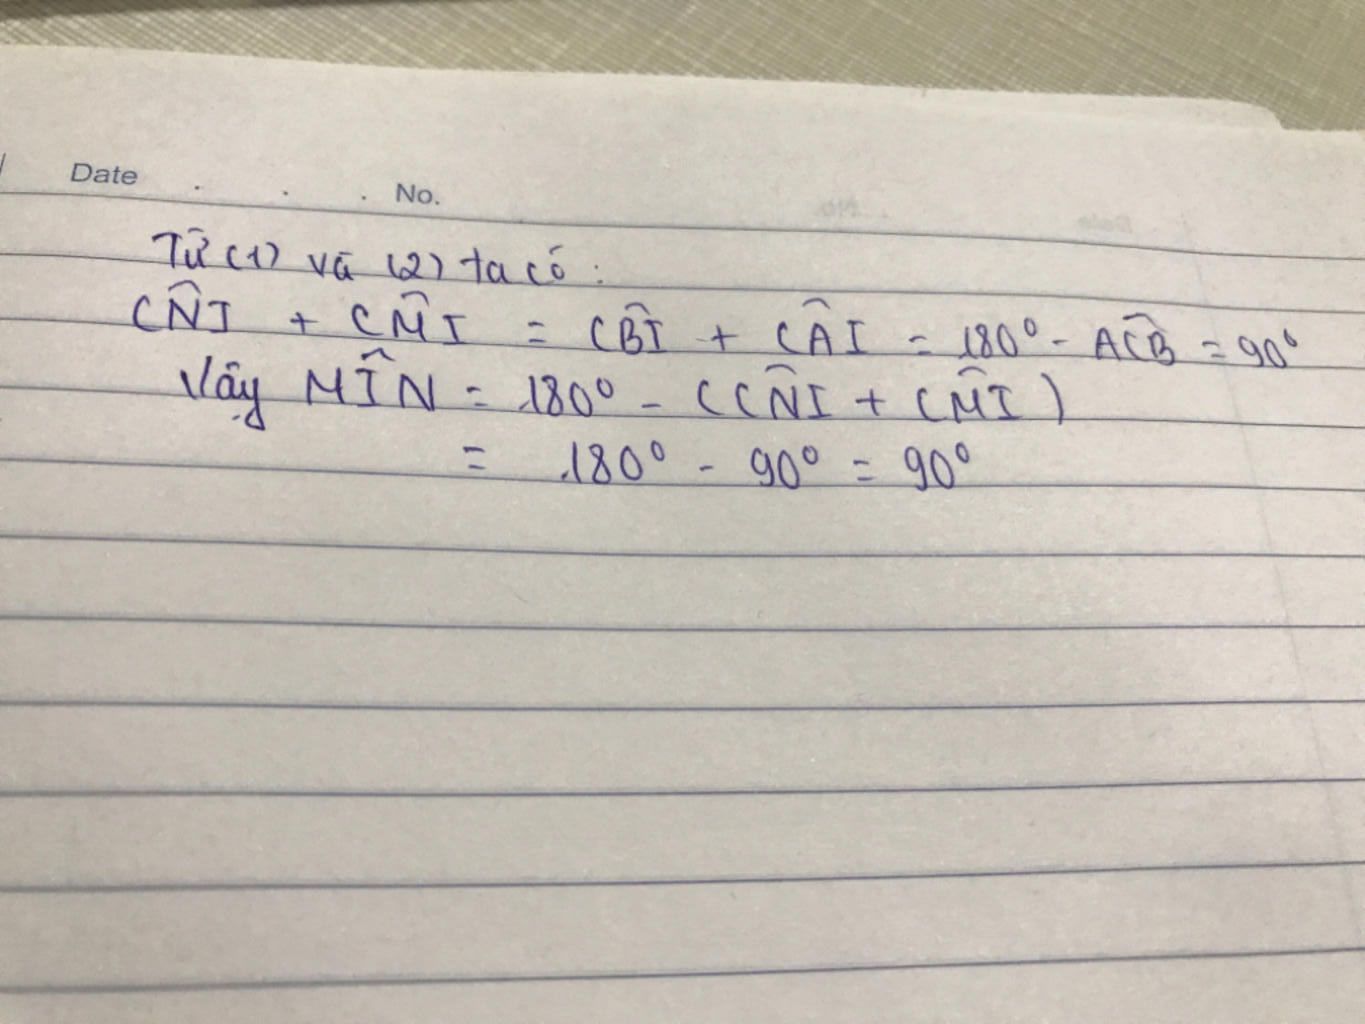 Date . . . No.
Từ (1) và (2) ta có :
CN̂I + CM̂I = CB̂I + CÂI = 180° - AĈB = 90°
Vậy MÎN = 180° - (CN̂I + CM̂I)
= 180° - 90° = 90°